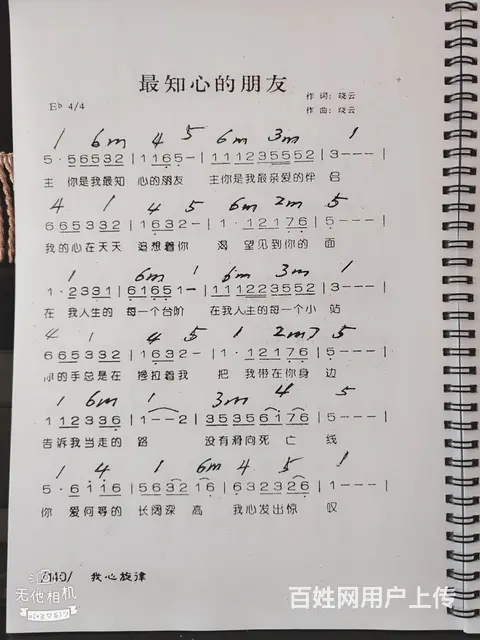 最知心的朋友
作 词: 晓云
E♭ 4/4
作 曲: 晓云
1 6m 4 5 6m 3m 1
5·56532 | 1165－| 11123 5552 | 3－－－|
主 你是我最知 心的朋友 主你是我最亲爱的伴侣
4 1 4 5 6m 2m 5
6653332 | 1632－| 1·12176 | 5－－－
我的心在天天 追想着你 渴 望见到你的面
1 6m 1 6m 3m 1
1·2331 | 61651－| 1112223552 | 3－－－|
在 我人生的 每一个台阶 在我人生的每一个小 站
4 1 4 5 1 2m7 5
6653332 | 1632－| 1·12176 | 5－－－
你的手总是在 搀拉着我 把 我带在你身 边
1 6m 1 3m 4 5
112336 | 1－－2 | 35356176 | 5－－－|
告诉我当走的 路 没有滑向死 亡 线
1 4 1 6m 4 5 1
5·6116 | 563216 | 6323226 | 1－－－|
你 爱何等的 长阔深 高 我心发出惊 叹
/140/ 我心旋律
无他相机
百姓网用户上传